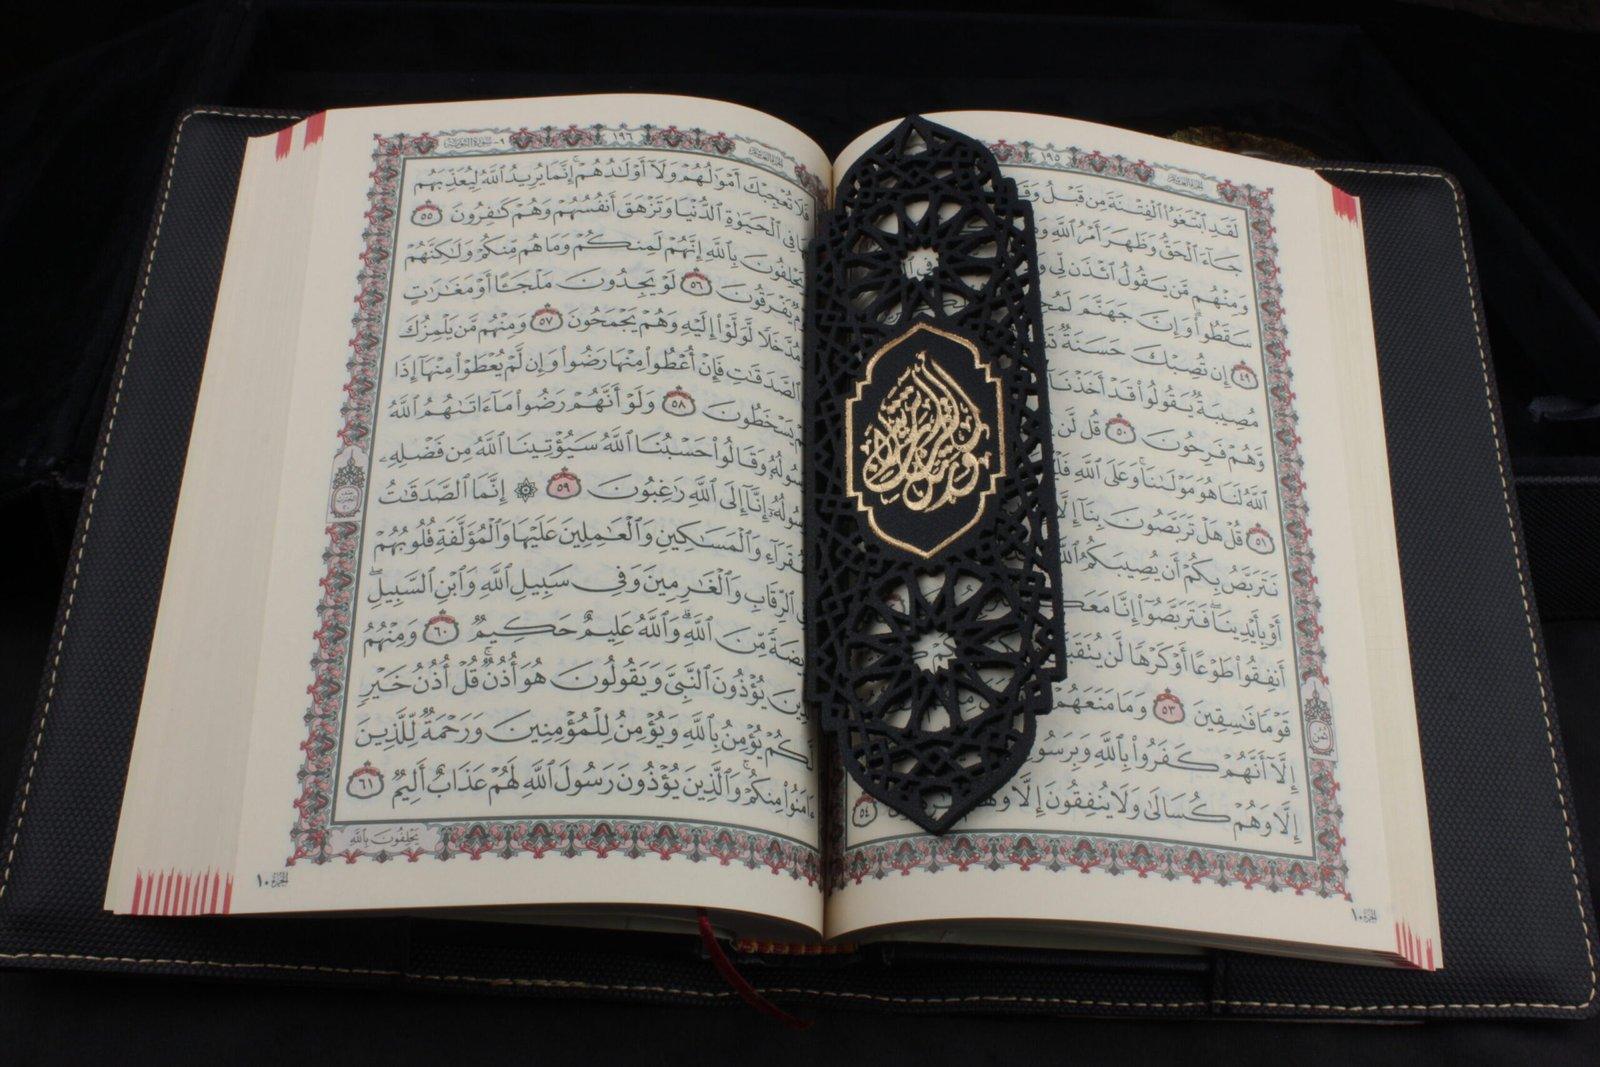 ١٩٥
لَقَدِ ٱبْتَغَوُا۟ ٱلْفِتْنَةَ مِن قَبْلُ
جَآءَ ٱلْحَقُّ وَظَهَرَ أَمْرُ ٱللَّهِ
وَمِنْهُم مَّن يَقُولُ ٱئْذَن لِّى
سَقَطُوا۟ وَإِنَّ جَهَنَّمَ
٤٩ إِن تُصِبْكَ حَسَنَةٌ
مُصِيبَةٌ يَقُولُوا۟ قَدْ أَخَذْنَا
وَّهُمْ فَرِحُونَ ٥٠ قُل لَّن
ٱللَّهُ لَنَا هُوَ مَوْلَىٰنَا وَعَلَى ٱللَّهِ
٥١ قُلْ هَلْ تَرَبَّصُونَ بِنَآ إِلَّآ
نَتَرَبَّصُ بِكُمْ أَن يُصِيبَكُمُ ٱللَّهُ
أَوْ بِأَيْدِينَا فَتَرَبَّصُوٓا۟ إِنَّا
أَنفِقُوا۟ طَوْعًا أَوْ كَرْهًا لَّن
قَوْمًا فَٰسِقِينَ ٥٣ وَمَا مَنَعَهُمْ
إِلَّآ أَنَّهُمْ كَفَرُوا۟ بِٱللَّهِ
إِلَّا وَهُمْ كُسَالَىٰ وَلَا يُنفِقُونَ إِلَّا ٥٤
ثمن
الجزء ١٠
٩- سورة التوبة ١٩٦ الجزء العاشر
فَلَا تُعْجِبْكَ أَمْوَٰلُهُمْ وَلَآ أَوْلَٰدُهُمْ إِنَّمَا يُرِيدُ ٱللَّهُ لِيُعَذِّبَهُم
بِهَا فِى ٱلْحَيَوٰةِ ٱلدُّنْيَا وَتَزْهَقَ أَنفُسُهُمْ وَهُمْ كَٰفِرُونَ ٥٥
وَيَحْلِفُونَ بِٱللَّهِ إِنَّهُمْ لَمِنكُمْ وَمَا هُم مِّنكُمْ وَلَٰكِنَّهُمْ
قَوْمٌ يَفْرَقُونَ ٥٦ لَوْ يَجِدُونَ مَلْجَـًٔا أَوْ مَغَٰرَٰتٍ
أَوْ مُدَّخَلًا لَّوَلَّوْا۟ إِلَيْهِ وَهُمْ يَجْمَحُونَ ٥٧ وَمِنْهُم مَّن يَلْمِزُكَ
فِى ٱلصَّدَقَٰتِ فَإِنْ أُعْطُوا۟ مِنْهَا رَضُوا۟ وَإِن لَّمْ يُعْطَوْا۟ مِنْهَآ إِذَا
هُمْ يَسْخَطُونَ ٥٨ وَلَوْ أَنَّهُمْ رَضُوا۟ مَآ ءَاتَىٰهُمُ ٱللَّهُ
وَرَسُولُهُۥ وَقَالُوا۟ حَسْبُنَا ٱللَّهُ سَيُؤْتِينَا ٱللَّهُ مِن فَضْلِهِۦ
وَرَسُولُهُۥٓ إِنَّآ إِلَى ٱللَّهِ رَٰغِبُونَ ٥٩ ۞ إِنَّمَا ٱلصَّدَقَٰتُ
لِلْفُقَرَآءِ وَٱلْمَسَٰكِينِ وَٱلْعَٰمِلِينَ عَلَيْهَا وَٱلْمُؤَلَّفَةِ قُلُوبُهُمْ
وَفِى ٱلرِّقَابِ وَٱلْغَٰرِمِينَ وَفِى سَبِيلِ ٱللَّهِ وَٱبْنِ ٱلسَّبِيلِ
فَرِيضَةً مِّنَ ٱللَّهِ وَٱللَّهُ عَلِيمٌ حَكِيمٌ ٦٠ وَمِنْهُمُ
ٱلَّذِينَ يُؤْذُونَ ٱلنَّبِىَّ وَيَقُولُونَ هُوَ أُذُنٌ قُلْ أُذُنُ خَيْرٍ
لَّكُمْ يُؤْمِنُ بِٱللَّهِ وَيُؤْمِنُ لِلْمُؤْمِنِينَ وَرَحْمَةٌ لِّلَّذِينَ
ءَامَنُوا۟ مِنكُمْ وَٱلَّذِينَ يُؤْذُونَ رَسُولَ ٱللَّهِ لَهُمْ عَذَابٌ أَلِيمٌ ٦١
يَحْلِفُونَ بِٱللَّهِ
الجزء ١٠